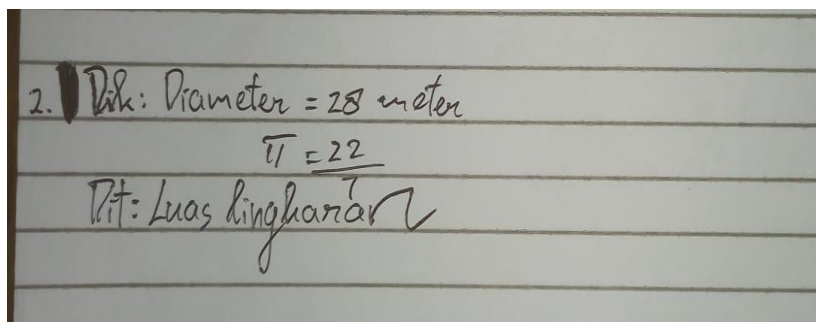 2. Dik: Diameter = 28 meter
π = 22/7
Dit: Luas lingkaran